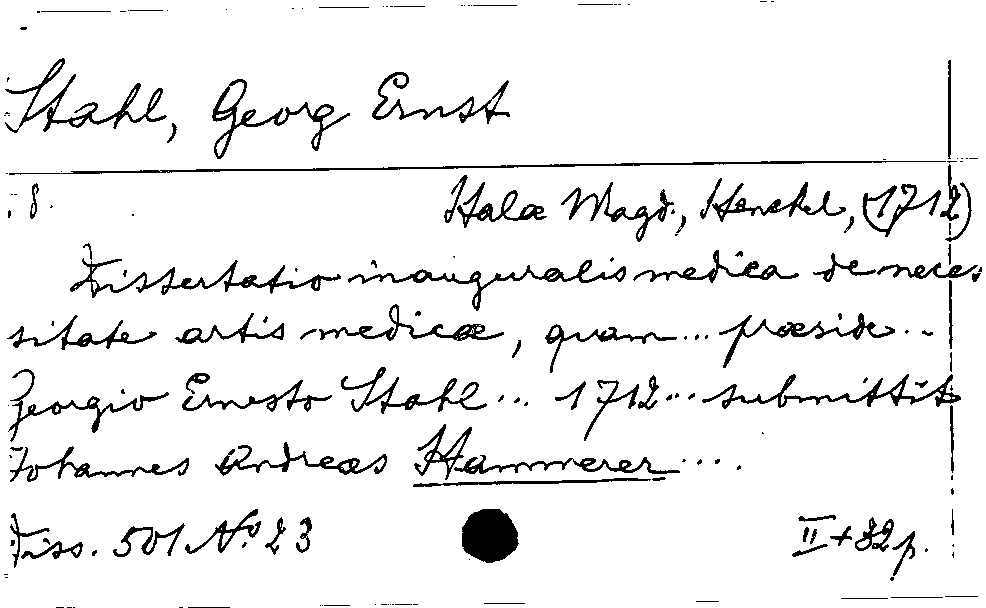 Stahl, Georg Ernst
8.
Halæ Magd., Henckel, (1712)
Dissertatio inauguralis medica de neces
sitate artis medicæ, quam... præside...
Georgio Ernesto Stahl... 1712... submittit
Johannes Andreas Hammerer....
Diss. 501 No. 23
II+32p.